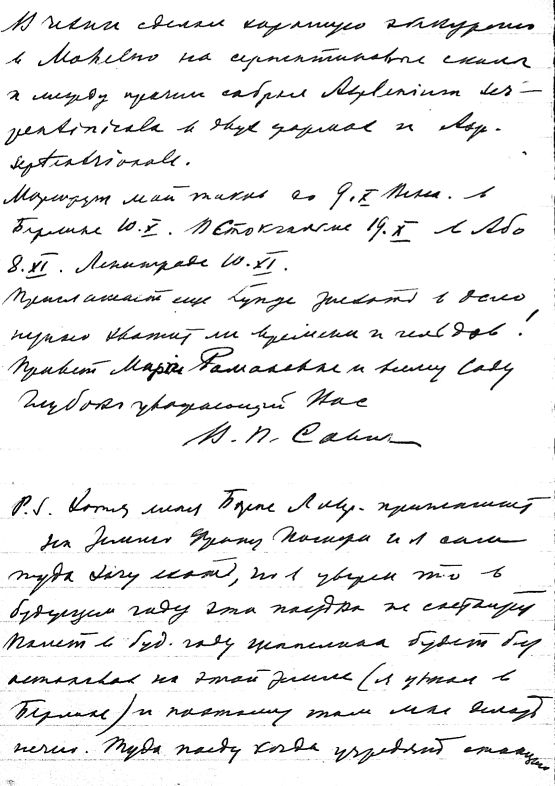 В Чехии сделал хорошую экскурсию
в Mohelno на серпентиновые скалы
и между прочим собрал Asplenium ser-
pentinicola в двух формах и Asp.
septentrionale.
Маршрут мой таков до 9.X Вена. в
Берлине 10.X. в Стокгольме 19.X в Або
8.XI. Ленинграде 10.XI.
Приглашает еще заехать в Осло
хватит ли времени и !
Привет Марии Романовне и всему Саду
Глубоко уважающий Вас
В. П. Савич
P.S. Хотя меня Борис приглашает
на Землю Франц Иосифа и я сам
туда хочу ехать, но я уверен что в
будущем году эта поездка не состоится
Полет в буд. году цеппелина будет без
остановок на этой земле (я узнал в
Берлине) и поэтому там мне делать
нечего. Туда поеду когда учредят станцию